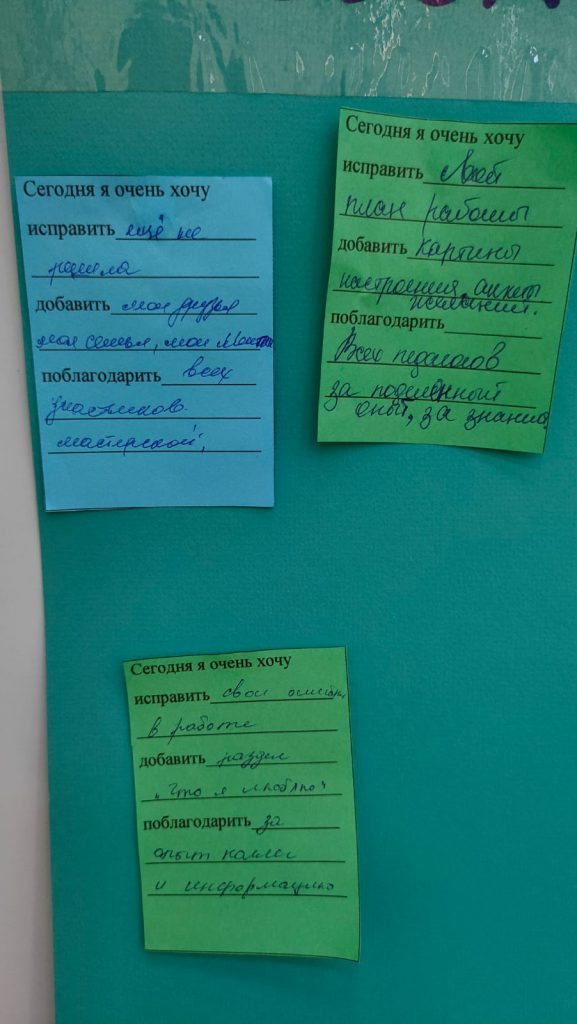 Сегодня я очень хочу
исправить ещё не
решила
добавить мои друзья
моя семья, мои
поблагодарить всех
участников
мастерской,
Сегодня я очень хочу
исправить
план работы
добавить картины
настроения,
поблагодарить
Всех педагогов
за поделенный
опыт, за знания.
Сегодня я очень хочу
исправить свои ошибки
в работе
добавить раздел
"Что я люблю"
поблагодарить за
опыт коллег
и информацию